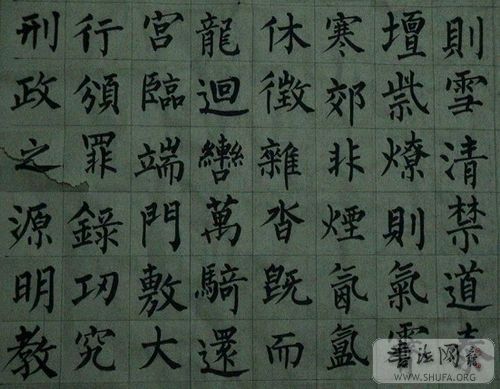 則雪清禁道
壇祡燎則氣
寒郊非煙氤氳
休徵雜沓既而
龍迴轡萬騎還
宮臨端門敷大
行頒罪錄功究
刑政之源明教
WWW.SHUFA.ORG